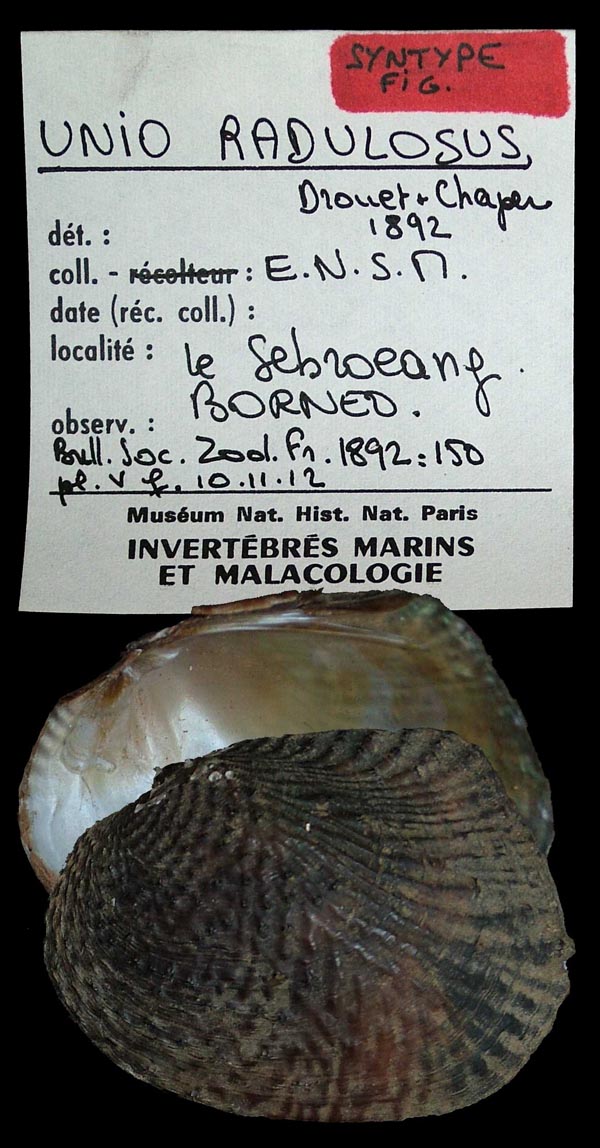 SYNTYPE
FIG.
UNIO RADULOSUS,
Drouet + Chaper
1892
dét. :
coll. - récolteur : E.N.S.M.
date (réc. coll.) :
localité : le Sebroeang.
BORNEO.
observ. :
Bull. Soc. Zool. Fr. 1892:150
pl. V f. 10.11.12
Muséum Nat. Hist. Nat. Paris
INVERTÉBRÉS MARINS
ET MALACOLOGIE